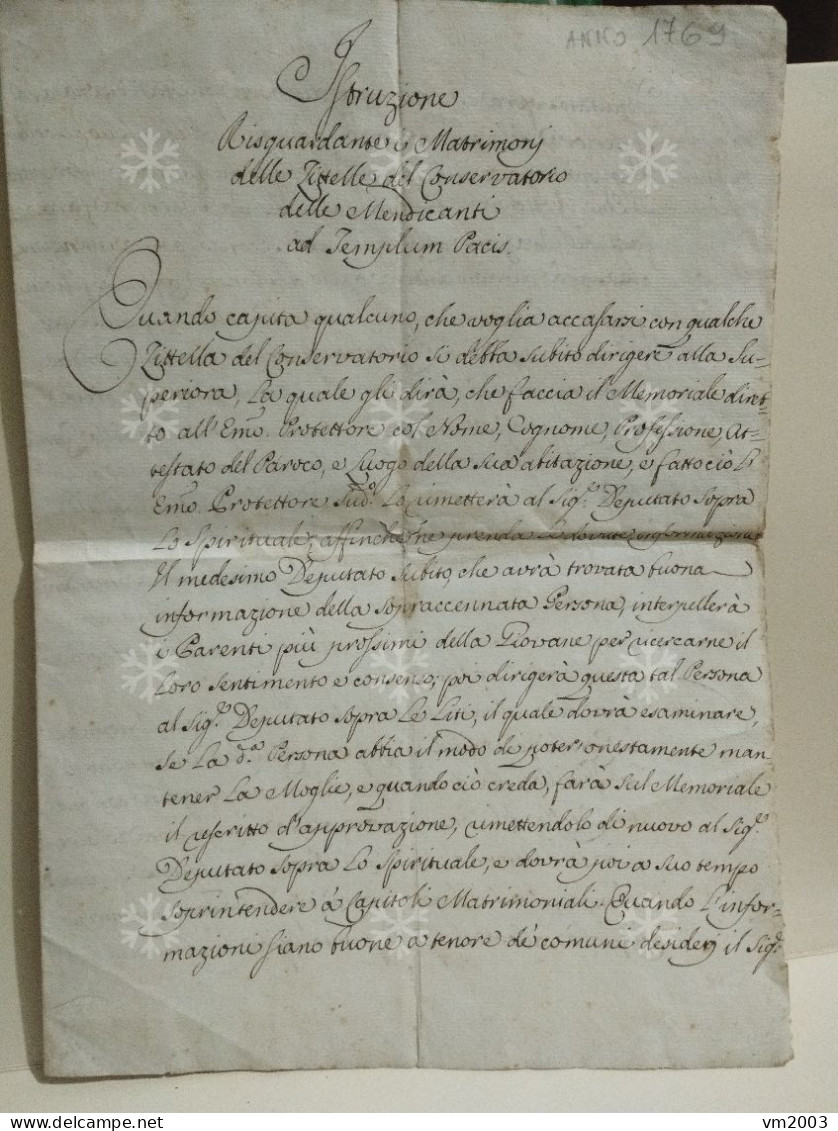 ANNO 1769
Istruzione
Risguardante i Matrimonj
delle Zittelle del Conservatorio
delle Mendicanti
ad Templum Pacis.
Quando capita qualcuno, che voglia accasarsi con qualche
Zittella del Conservatorio si debba subito dirigere alla Su-
periora, La quale gli dirà, che faccia il Memoriale diret-
to all'Emo. Protettore col Nome, Cognome, Professione, At-
testato del Paroco, e Luogo della sua abitazione, e fatto ciò L'
Emo. Protettore Sudo. Lo rimetterà al Sigr. Deputato sopra
Lo Spirituale, affinche ne prenda le dovute informazioni
Il medesimo Deputato subito, che avrà trovata buona
informazione della sopraccennata Persona, interpellerà
i Parenti più prossimi della Giovane per ricercarne il
Loro sentimento e consenso; poi dirigerà questa tal Persona
al Sigr. Deputato sopra Le Liti, il quale dovrà esaminare,
se La da. Persona abbia il modo de poter onestamente man-
tener La Moglie, e quando ciò creda, farà sul Memoriale
il rescritto d'approvazione, rimettendolo di nuovo al Sigr.
Deputato sopra Lo Spirituale, e dovrà poi a suo tempo
soprintendere á Capitoli Matrimoniali. Quando L'infor-
mazioni siano buone a tenore de' comuni desiderj il Sigr.
vm2003